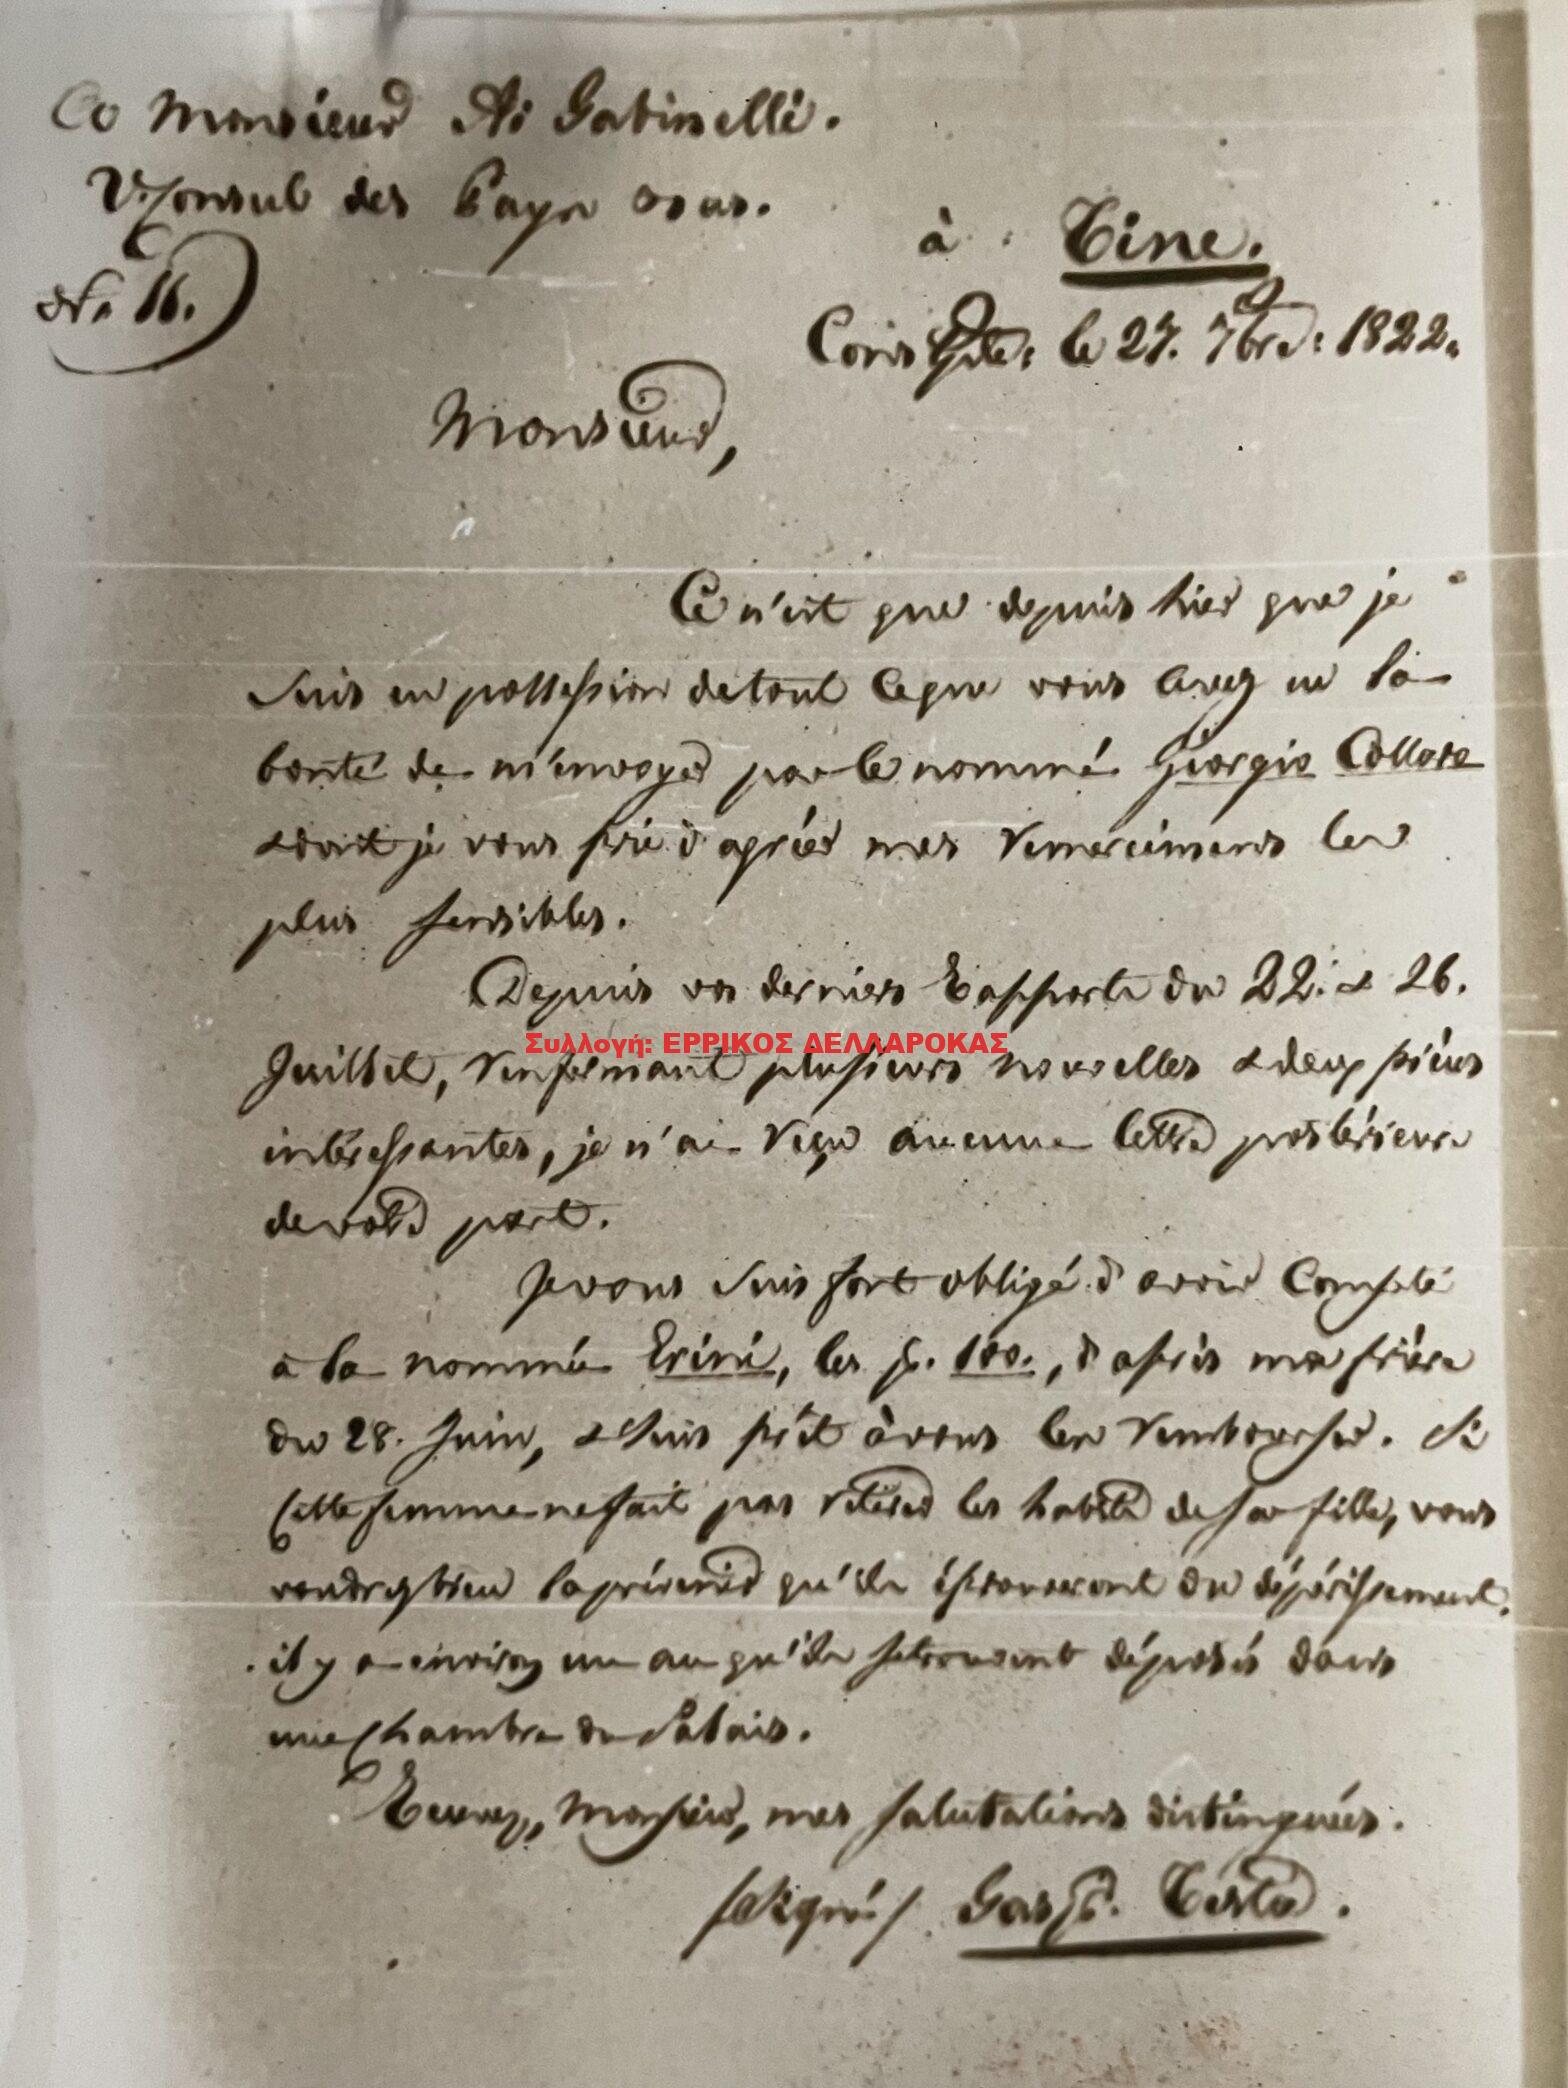 A Monsieur A: Gabinelli.
V. Consul des Pays bas.
à Tine.
No 16.
Constple: le 27. 7bre: 1822.
Monsieur,
Ce n'est que depuis hier que je
suis en possession de tout ce que vous avez eu la
bonté de m'envoyer par le nommé Giorgio Collaro
& dont je vous prie d'agréer mes remerciemens les
plus sensibles.
Depuis vos derniers Rapports du 22. & 26.
Juillet, renfermant plusieurs nouvelles & deux pièces
intéressantes, je n'ai reçu aucune lettre postérieure
de votre part.
Συλλογή: ΕΡΡΙΚΟΣ ΔΕΛΛΑΡΟΚΑΣ
Je vous suis fort obligé d'avoir compté
à la nommée Erini, les p. 100., d'après ma prière
du 28. Juin, & suis prêt à vous les rembourser. Si
cette femme ne fait pas retirer les habits de sa fille, vous
voudrez bien la prévenir qu'ils éprouveront du dépérissement.
il y a environ un an qu'ils se trouvent déposés dans
une chambre du Palais.
Recevez, Monsieur, mes salutations distinguées.
/signé/ Gasp. Testa.